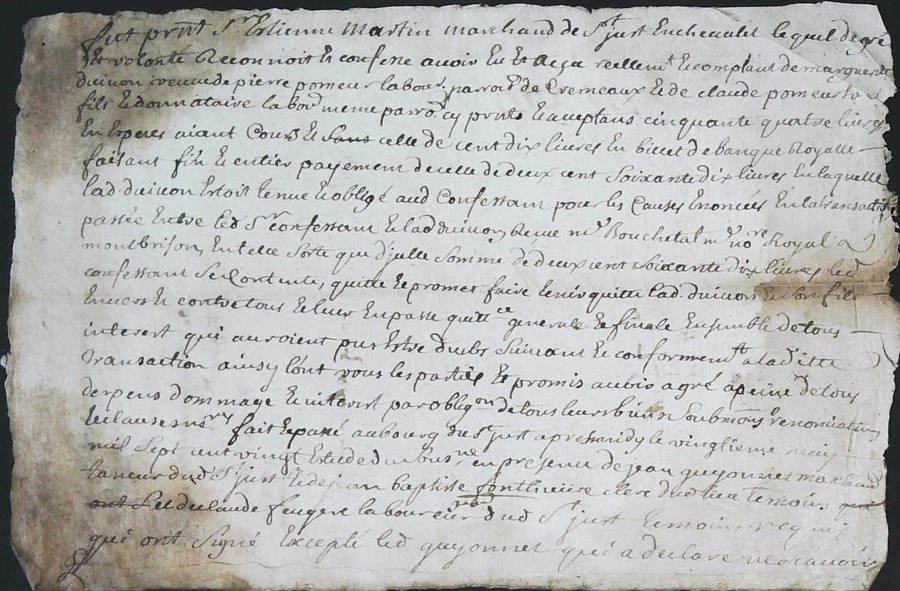 fut pnt Sr Estienne Martin marchand de St just En chevalet lequel de gré
Et volonté Reconnoit Et confesse avoir Eu Et Reçu reellemt Et comptant de marguerite
duivon veuve de pierre pomeur labour parroisse de Cremeaux Et de claude pomeur
fils Et donnataire labour meme parro cy pnts Et acceptans cinquante quatre livres
En Espeses aiant Cours Et celle de cent dix livres En billet de banque Royalle
faisant fin Et entier payement de celle de deux cent Soixante dix livres En laquelle
lad. duivon Estoit tenue Et obligé aud Confessant pour les Causes Enoncées En la transaction
passée Entre led Sr confessant Et lad duivon Me Bouchetal nore Royal a
montbrison, En telle sorte que d'jcelle somme de deux cent Soixante dix livres led
confessant Se contente, quitte Et promet faire tenir quitte lad. duivon Et son fils
Envers Et contre tous Et leur En passe quittce generale Et finale Ensemble de tous
interest qui auroient pu Estre dubs Suivant Et conformement a lad itte
transaction ainsy l'ont voulu les parties Et promis avoir agré a peine de tous
despens dommage Et interest par obligon de tous leurs biens Soubmions renonciations
Et clauses fait Et passé au bourg dud St just apres midy le vingtieme may
mil Sept cent vingt Et led en presence de jean guyonnet marchand
taneur dud St just Et de jean baptiste fonthieure clerc dud lieu temoins
ont Et de claude feugere laboureur dud St just temoins requis
qui ont Signé Excepté led guyonnet qui a declaré ne scavoir